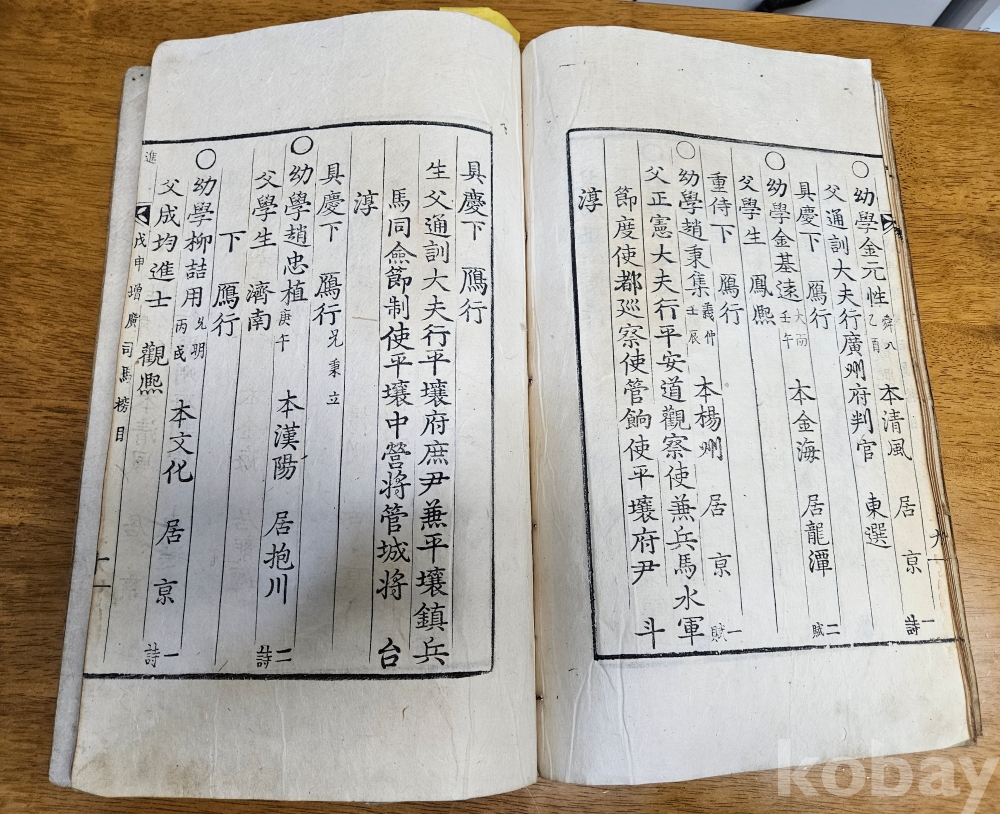 ○幼學金元性 舜八 乙酉 本清風 居京 一詩
父通訓大夫行廣州府判官 東選
具慶下 鴈行
○幼學金基遠 壬午 本金海 居龍潭 二賦
父學生 鳳熙
重侍下 鴈行
○幼學趙秉集 羲仲 壬辰 本楊州 居京 一賦
父正憲大夫行平安道觀察使兼兵馬水軍
節度使都巡察使管餉使平壤府尹 斗
淳
具慶下 鴈行
生父通訓大夫行平壤府庶尹兼平壤鎮兵
馬同僉節制使平壤中營將管城將 台
淳
具慶下 鴈行 兄秉立
○幼學趙忠植 庚午 本漢陽 居抱川 二詩
父學生 濟南
下 鴈行
○幼學柳喆用 允明 丙戌 本文化 居京 一詩
父成均進士 觀熙
進 戊申增廣司馬榜目 十一
kobay